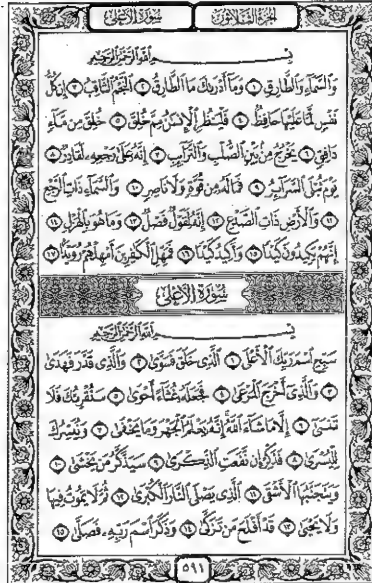 الجزء الثلاثون سورة الأعلى
بسم الله الرحمن الرحيم
والسماء والطارق ١ وما أدراك ما الطارق ٢ النجم الثاقب ٣ إن كل
نفس لما عليها حافظ ٤ فلينظر الإنسان مم خلق ٥ خلق من ماء
دافق ٦ يخرج من بين الصلب والترائب ٧ إنه على رجعه لقادر ٨
يوم تبلى السرائر ٩ فما له من قوة ولا ناصر ١٠ والسماء ذات الرجع
١١ والأرض ذات الصدع ١٢ إنه لقول فصل ١٣ وما هو بالهزل ١٤
إنهم يكيدون كيدا ١٥ وأكيد كيدا ١٦ فمهل الكافرين أمهلهم رويدا ١٧
سورة الأعلى
بسم الله الرحمن الرحيم
سبح اسم ربك الأعلى ١ الذي خلق فسوى ٢ والذي قدر فهدى
٣ والذي أخرج المرعى ٤ فجعله غثاء أحوى ٥ سنقرئك فلا
تنسى ٦ إلا ما شاء الله إنه يعلم الجهر وما يخفى ٧ ونيسرك
لليسرى ٨ فذكر إن نفعت الذكرى ٩ سيذكر من يخشى ١٠
ويتجنبها الأشقى ١١ الذي يصلى النار الكبرى ١٢ ثم لا يموت فيها
ولا يحيى ١٣ قد أفلح من تزكى ١٤ وذكر اسم ربه فصلى ١٥
٥٩١